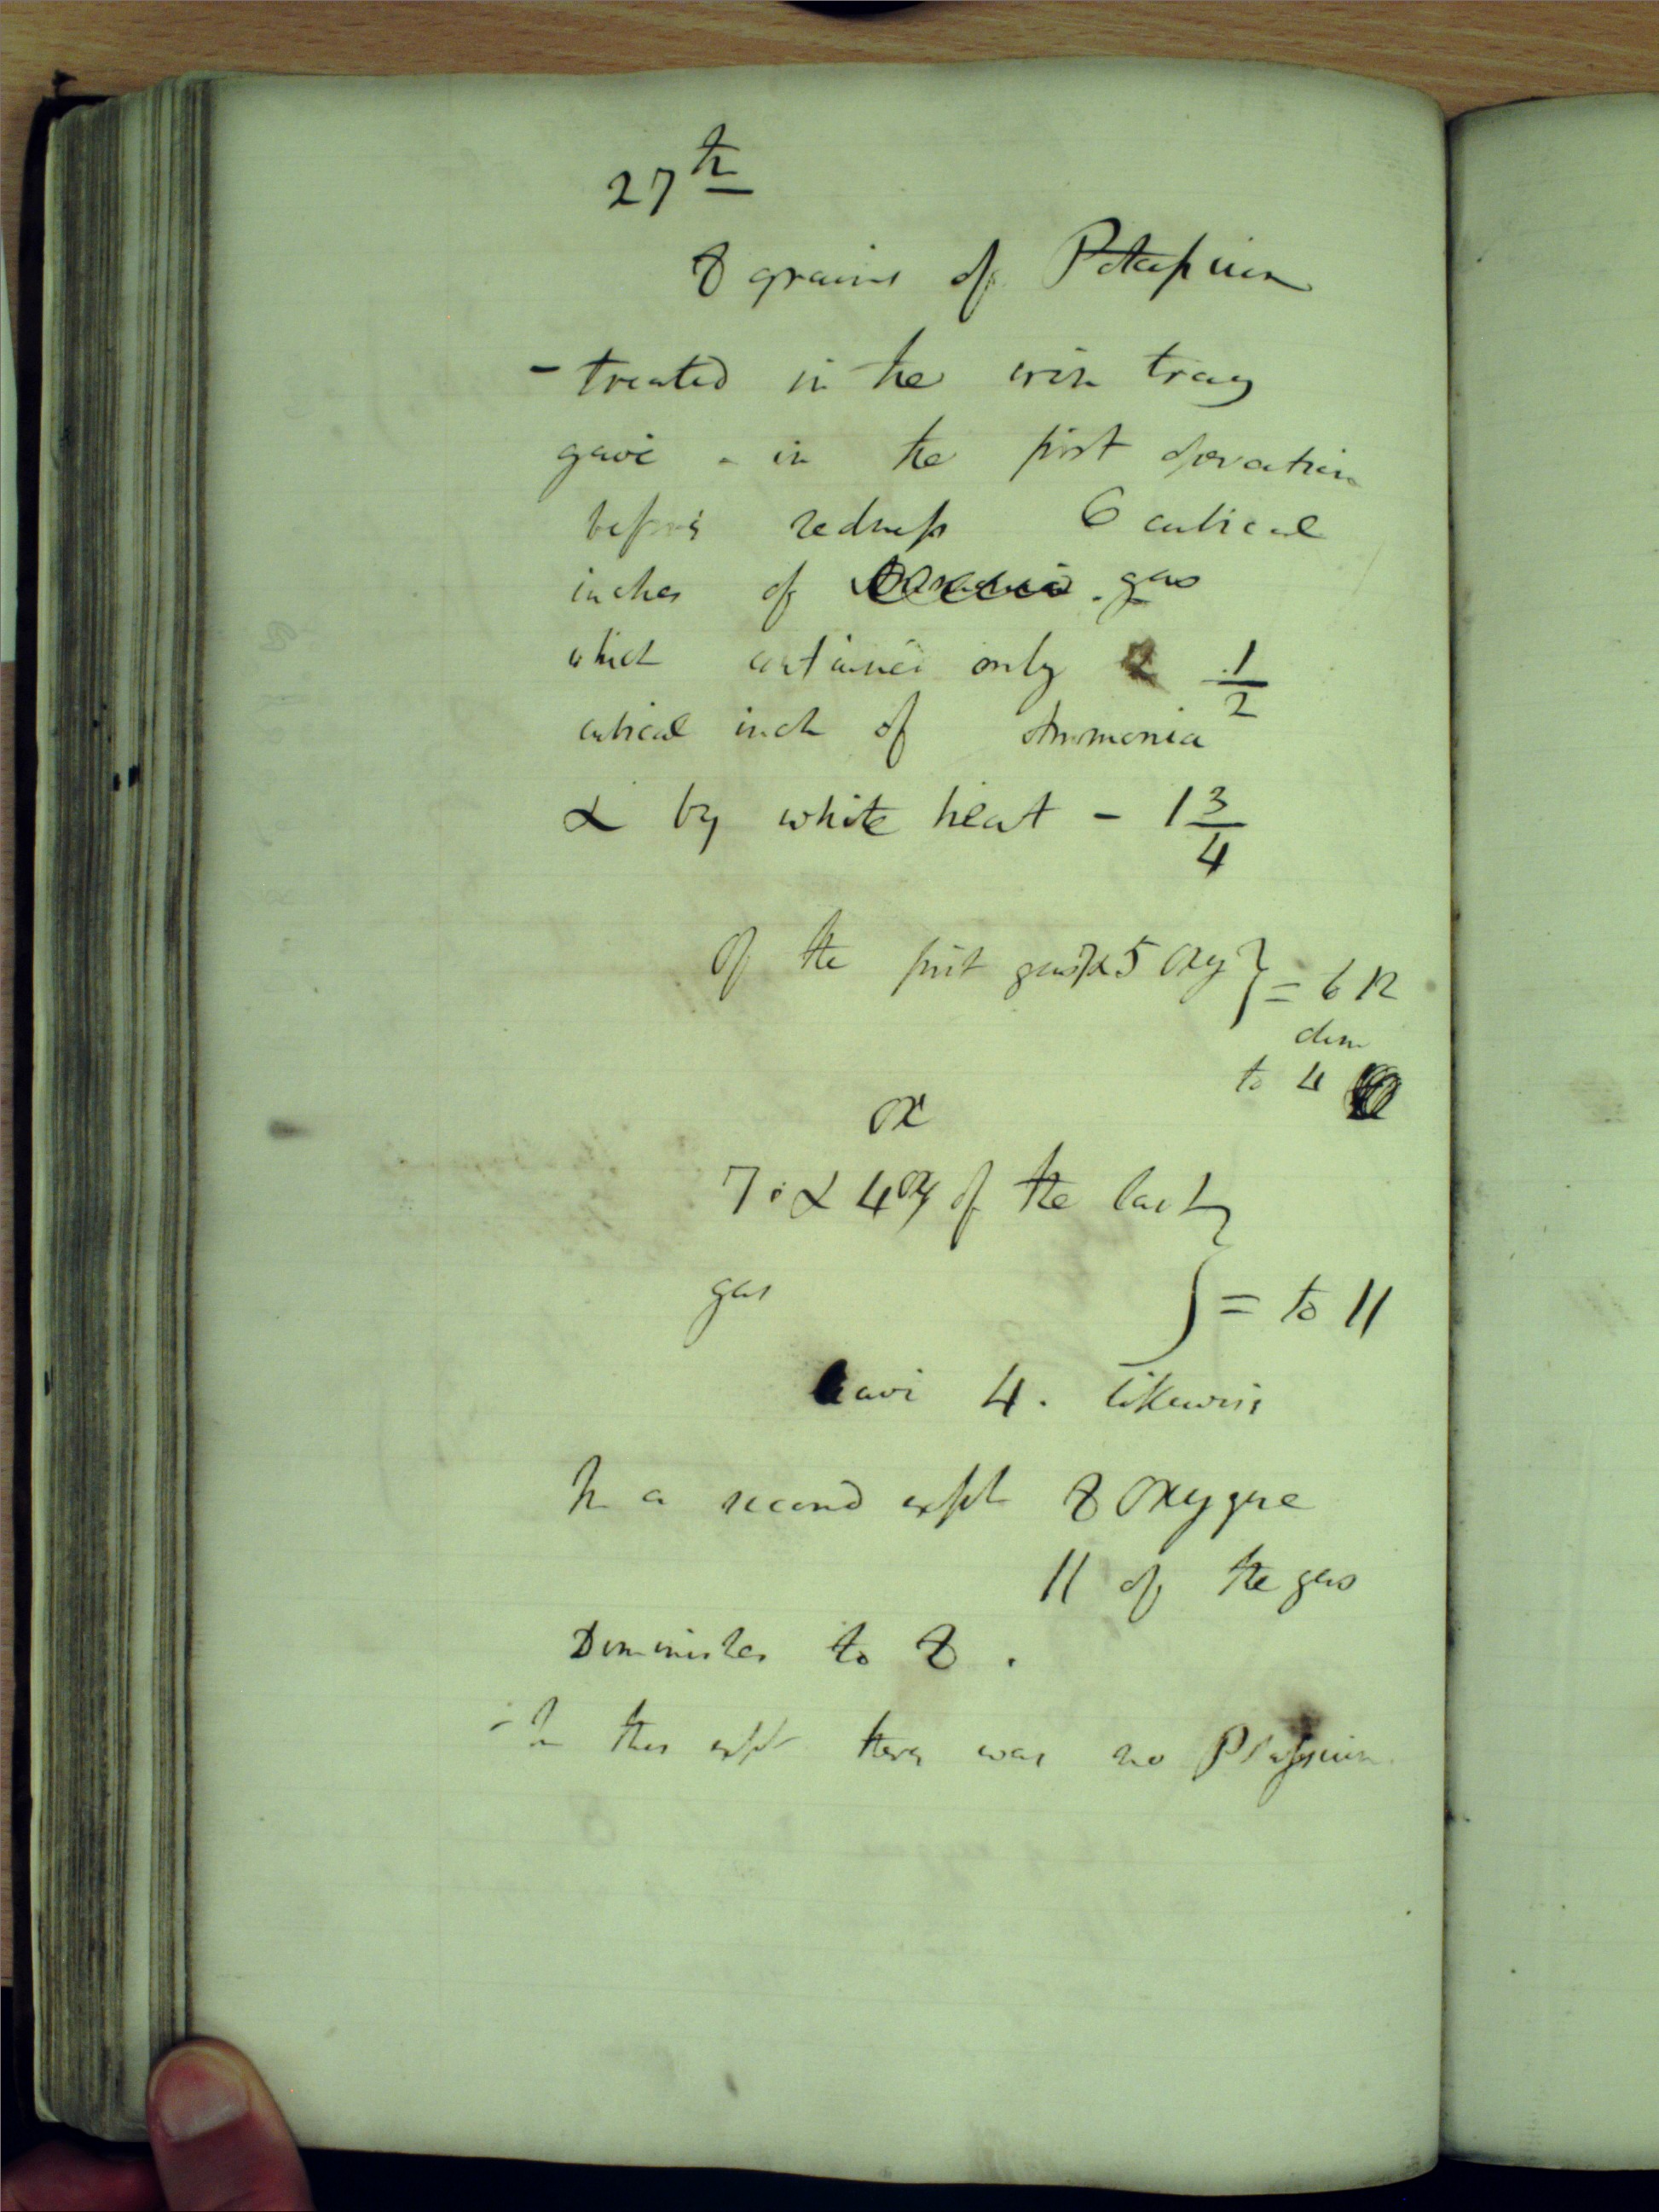 27th
8 grains of Potassium
- treated in the iron tray
gave - in the first operation
before redness 6 cubical
inches of gas
which contained only 1/2
cubical inch of Ammonia
& by white heat - 1 3/4
Of the first gas 7 & 5 Oxy } = to 12
dim
to 4
ox
7 . & 4 oxy of the last
gas } = to 11
leave 4 . likewise
In a second expt 8 Oxygne
11 of the gas
Diminishes to 8 .
- In this expt there was no Platinum.